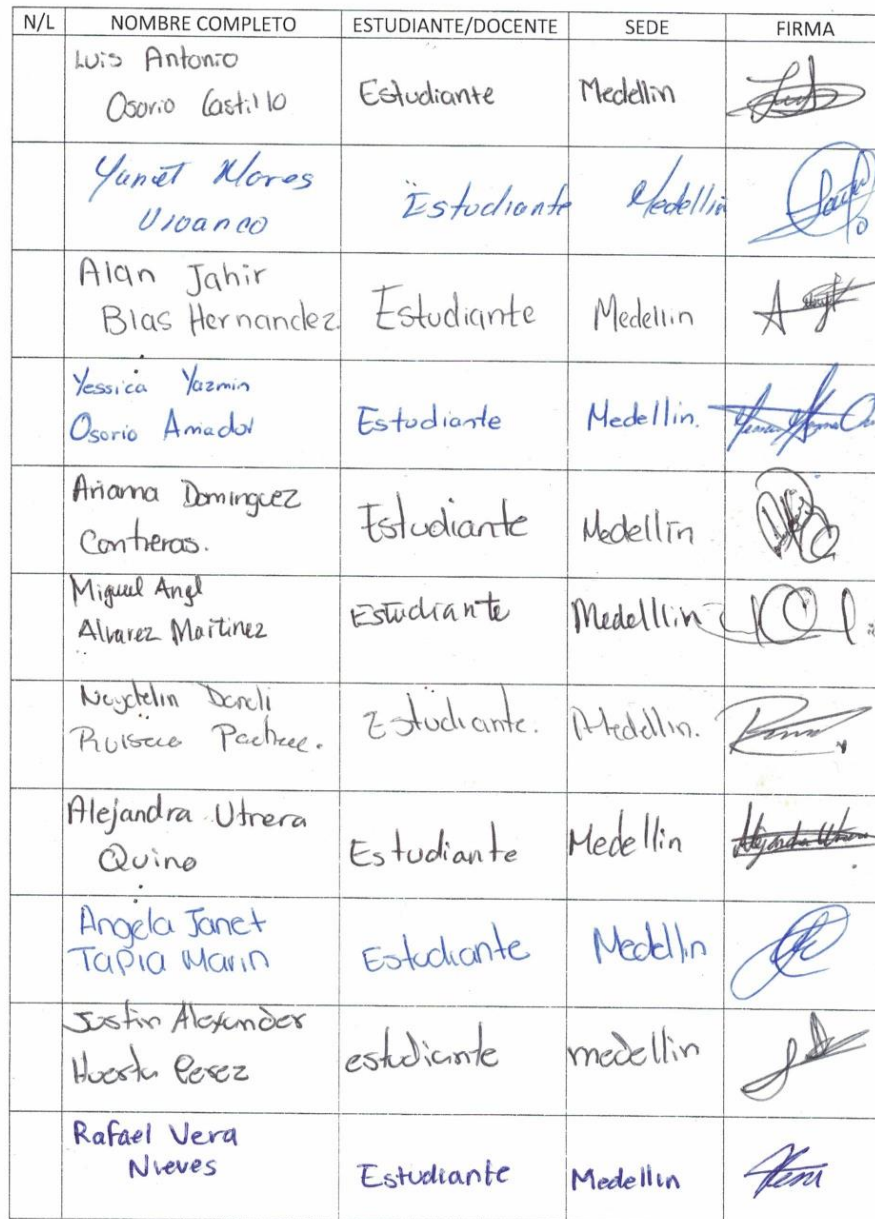 N/L NOMBRE COMPLETO ESTUDIANTE/DOCENTE SEDE FIRMA
Luis Antonio
Osorio Castillo Estudiante Medellin
Yanet Mores
Vivanco Estudiante Medellin
Alan Jahir
Blas Hernandez. Estudiante Medellin
Yessica Yazmin
Osorio Amador Estudiante Medellin.
Arianna Dominguez
Contreras. Estudiante Medellin
Miguel Angl
Alvarez Martinez Estudiante Medelllin
Neydelin Dareli
Estudiante. Medellin.
Alejandra Utrera
Quino Estudiante Medellin Alejandra Utrera
Angela Janet
Tapia Marin Estudiante Medellin
Justin Alexander
Huesta Perez estudiante medellin
Rafael Vera
Nieves Estudiante Medellin Vera